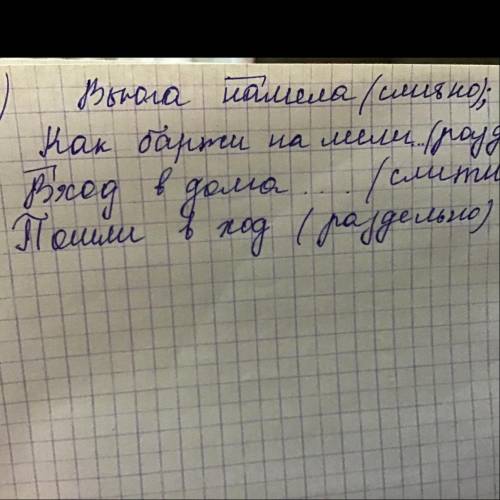 ) Вьюга намела (слитно);
Как баржи на мели.. (разд
Вход в дома .... (слитн
Пошли в ход (раздельно)